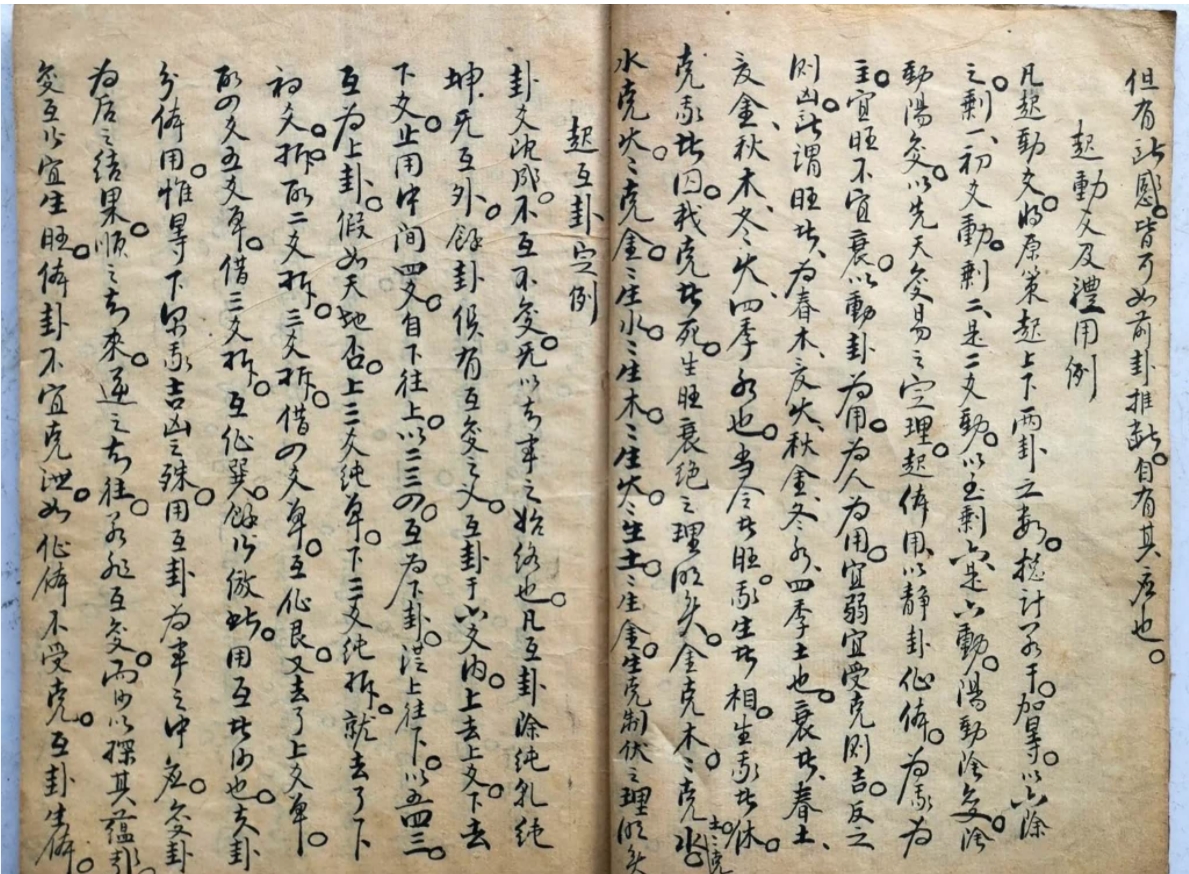 但有此感。皆可如前卦推斷。自有其应也。
起動爻及體用例
凡起動爻。將原策起上下两卦之数。總計若干。加畧。以六除
之。剩一、初爻動。剩二、是二爻動。以至剩六是六動。陽動陰变陰
動陽变。以先天变易之定理。起体用、以静卦作体。为我为
主。宜旺不宜衰。以動卦为用。为人为用。宜弱宜受克则吉。反之
则凶。所謂旺者、为春木、夏火、秋金、冬水、四季土也。衰者、春土、
夏金、秋木、冬火、四季水也。当令者旺。我生者相。生我者休。
克我者囚。我克者死。生旺衰绝之理明矣。金克木。木克土。土克
水。水克火。火克金。金生水。水生木。木生火。火生土。土生金。生克制伏之理明矣
起互卦定例
卦爻既成。不互不变。无以知事之始终也。凡互卦除纯乾纯
坤。无互外。餘卦俱有互变之义。互卦于六爻内。上去上爻。下去
下爻。止用中间四爻。自下往上。以二三四。互为下卦。從上往下。以五四三。
互为上卦。假如天地否。上三爻纯单。下三爻纯拆。就去了下
初爻。拆。配二爻拆。三爻拆。借四爻单。互作艮。又去了上爻单。
配四爻五爻单。借三爻拆。互作巽。餘以倣此。用互者何也。夫卦
分体用。惟畧下字我吉凶之殊。用互卦为事之中应。变卦
为后之结果。順之知來。逆之知往。若非互变。而何以探其蕴彰。
变互以宜生旺。体卦不宜克泄。如作体不受克。互卦生体。